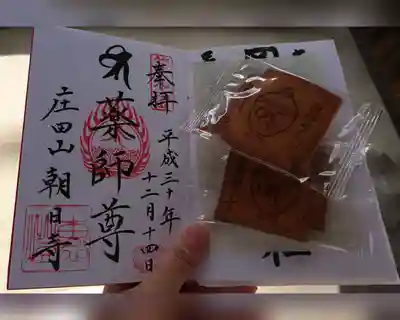 奉拝
平成三十年
十二月十四日
薬師尊
庄田山 朝日寺